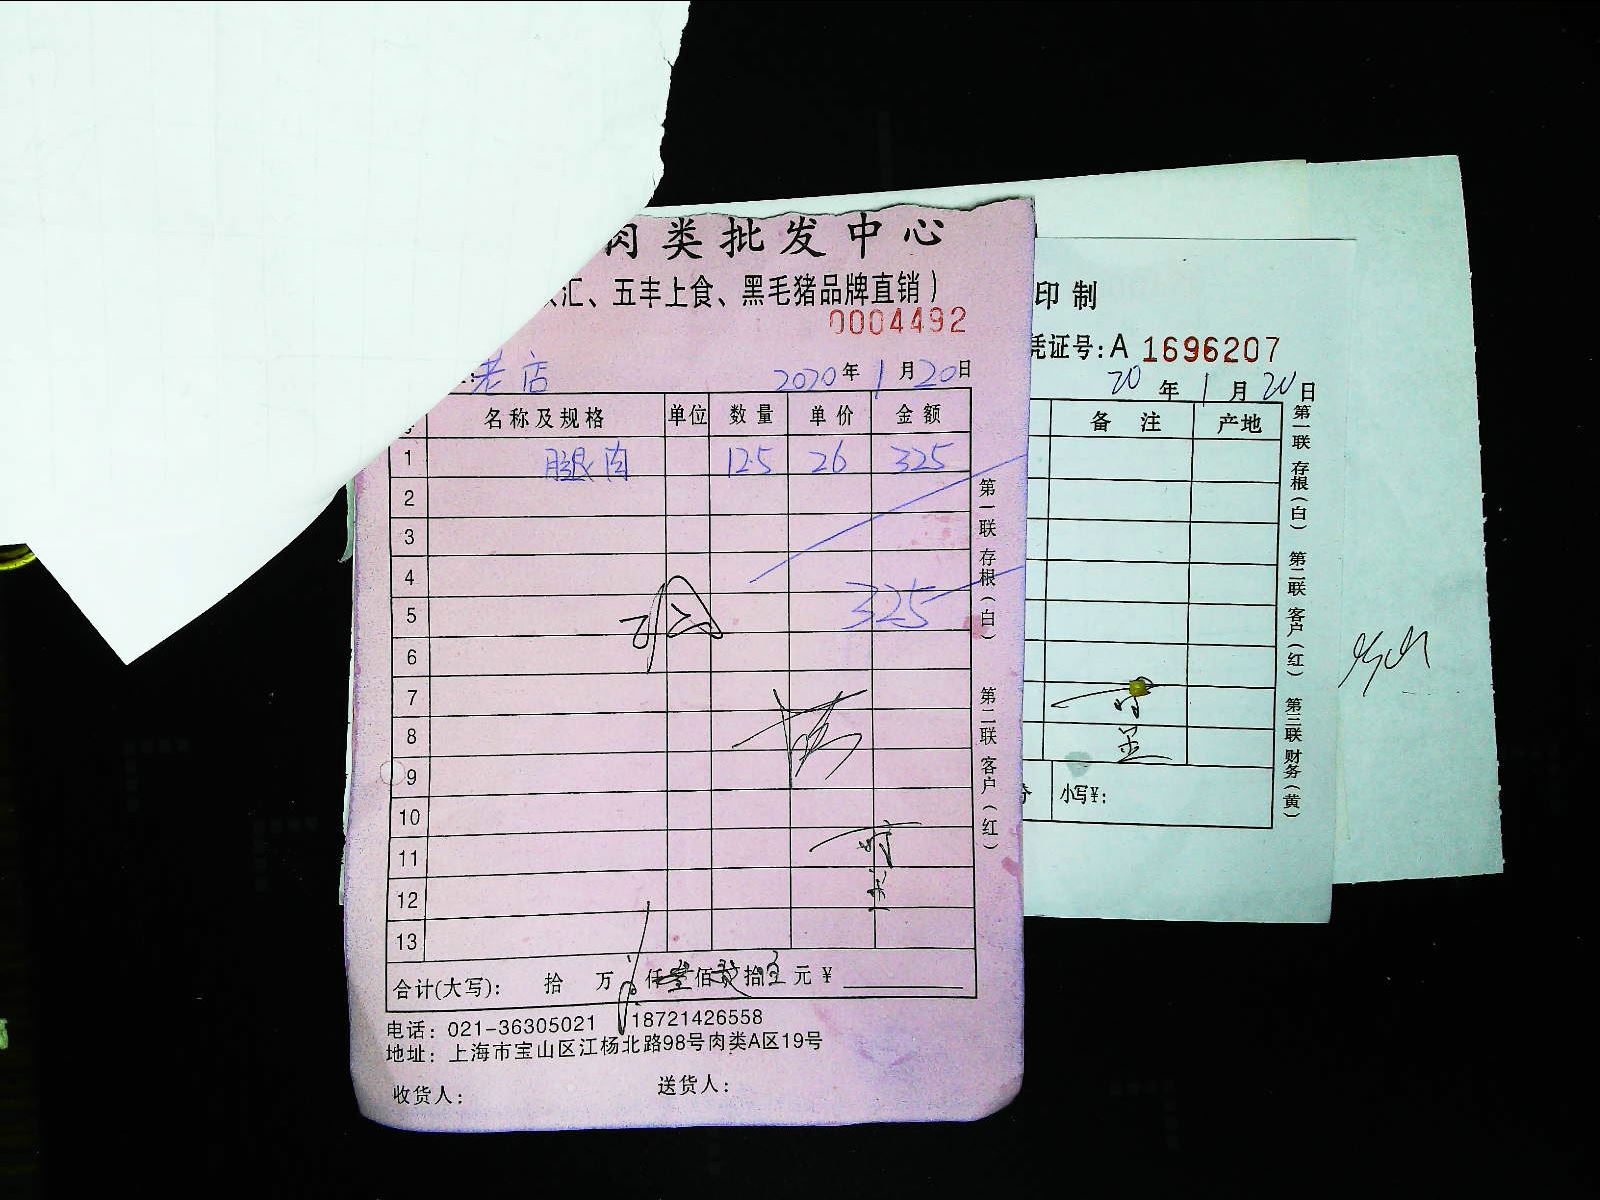 肉类批发中心
汇、五丰上食、黑毛猪品牌直销）
0004492
老店 2020年1月20日
名称及规格 单位 数量 单价 金额
1 腿肉 12.5 26 325
2
3
4
5 325
6
7
8
9
10
11
12
13
合计(大写): 拾 万 仟叁佰贰拾五元¥
电话: 021-36305021 18721426558
地址: 上海市宝山区江杨北路98号肉类A区19号
收货人: 送货人:
第一联 存根（白）
第二联 客户（红）
印制
凭证号:A 1696207
20年1月20日
备注 产地
小写¥:
第一联 存根（白）
第二联 客户（红）
第三联 财务（黄）